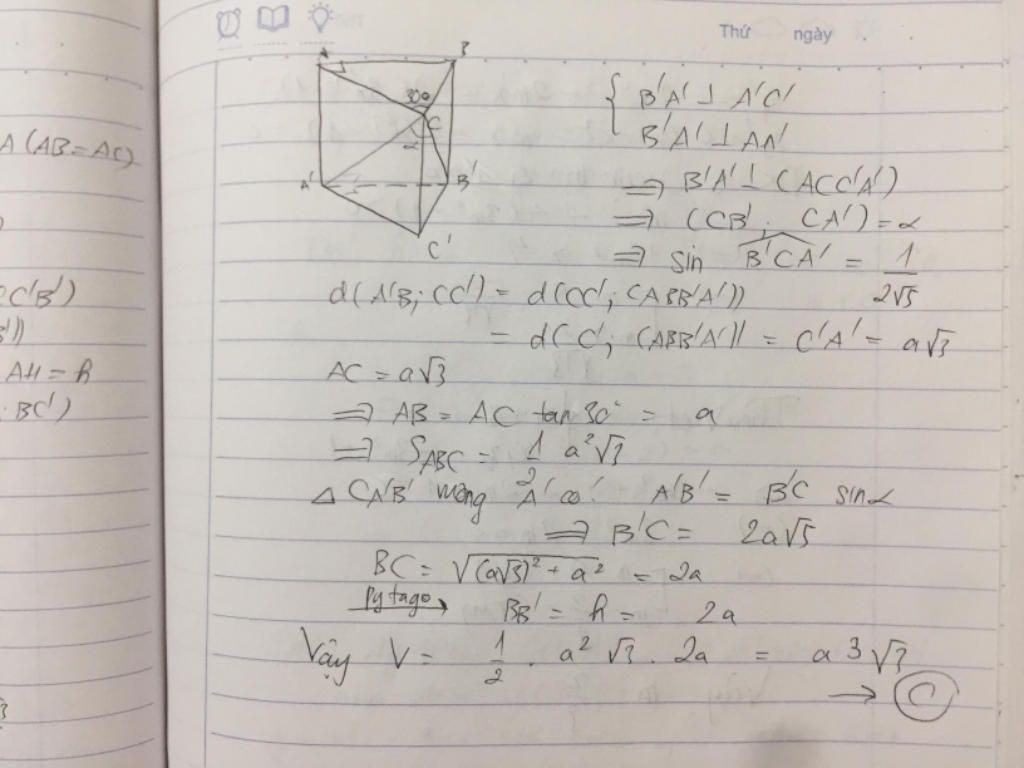 Thứ ngày
A B
30°
C
α
A' B'
C'
{ B'A' ⊥ A'C'
B'A' ⊥ AA'
⟹ B'A' ⊥ (ACC'A')
⟹ (CB'; CA') = α
⟹ sin B'CA' = 1/2√5
d(A'B; CC') = d(CC'; (ABB'A'))
= d(C'; (ABB'A')) = C'A' = a√3
AC = a√3
⟹ AB = AC tan 30° = a
⟹ S_ABC = 1/2 a²√3
△ CA'B' vuông A' có: A'B' = B'C sinα
⟹ B'C = 2a√5
BC = √((a√3)² + a²) = 2a
Pytago → BB' = h = 2a
Vậy V = 1/2 . a²√3 . 2a = a³√3
→ C
A (AB = AC)
C'B')
AH = h
; BC')